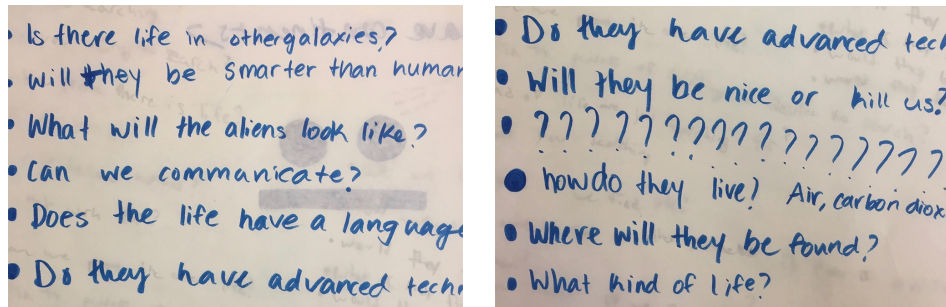 Is there life in othergalaxies?
Will they be smarter than human
What will the aliens look like?
Can we commanicate?
Does the life have a language
Do they have advanced techn
Do they have advanced tech
Will they be nice or kill us?
? ? ? ? ? ? ? ? ? ? ? ? ? ? ? ? ?
how do they live? Air, carbon diox
Where will they be found?
What kind of life?